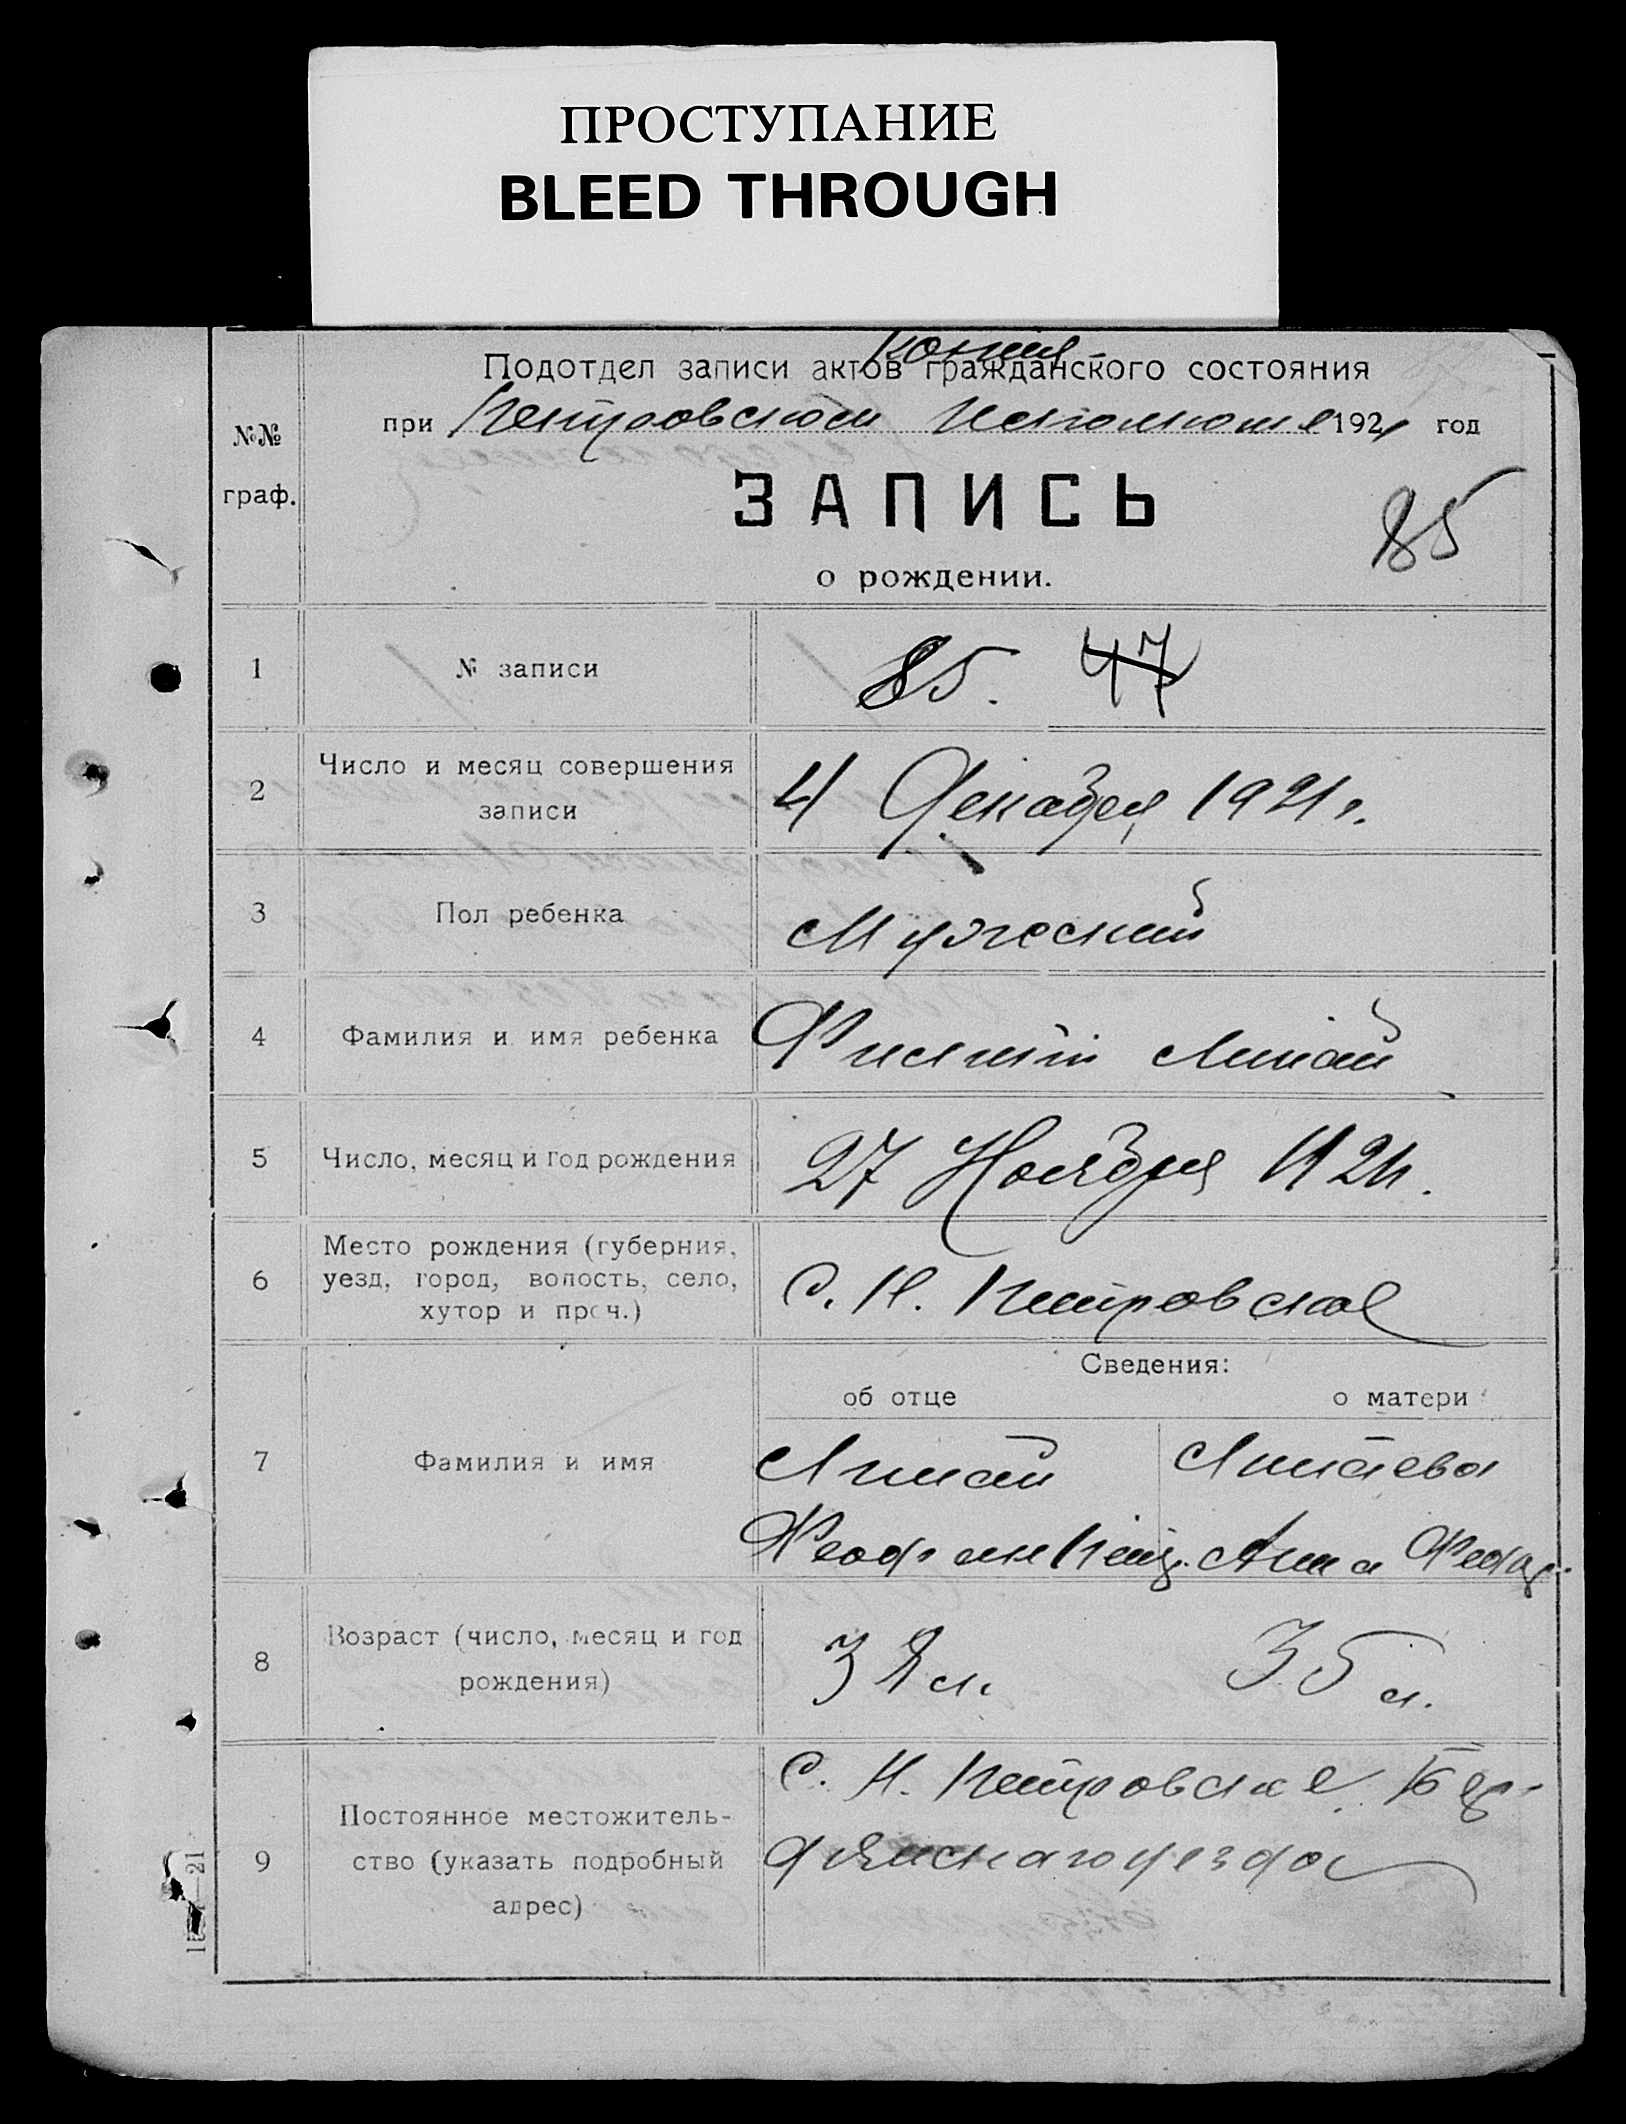 ПРОСТУПАНИЕ
BLEED THROUGH
Копия
Подотдел записи актов гражданского состояния
при Петровском Исполкоме 1921 год
№№
граф.
ЗАПИСЬ
85
о рождении.
1 № записи 85. 47
2 Число и месяц совершения
записи
4 Декабря 1921 г.
3 Пол ребенка Мужеский
4 Фамилия и имя ребенка Филипп
5 Число, месяц и год рождения 27 Ноября 1921.
6 Место рождения (губерния,
уезд, город, волость, село,
хутор и проч.)
С. Н. Петровское
Сведения:
об отце о матери
7 Фамилия и имя
Анна Федор.
8 Возраст (число, месяц и год
рождения)
38 л. 35 л.
9 Постоянное местожитель-
ство (указать подробный
адрес)
С. Н. Петровское Бер-
дянскаго уезда